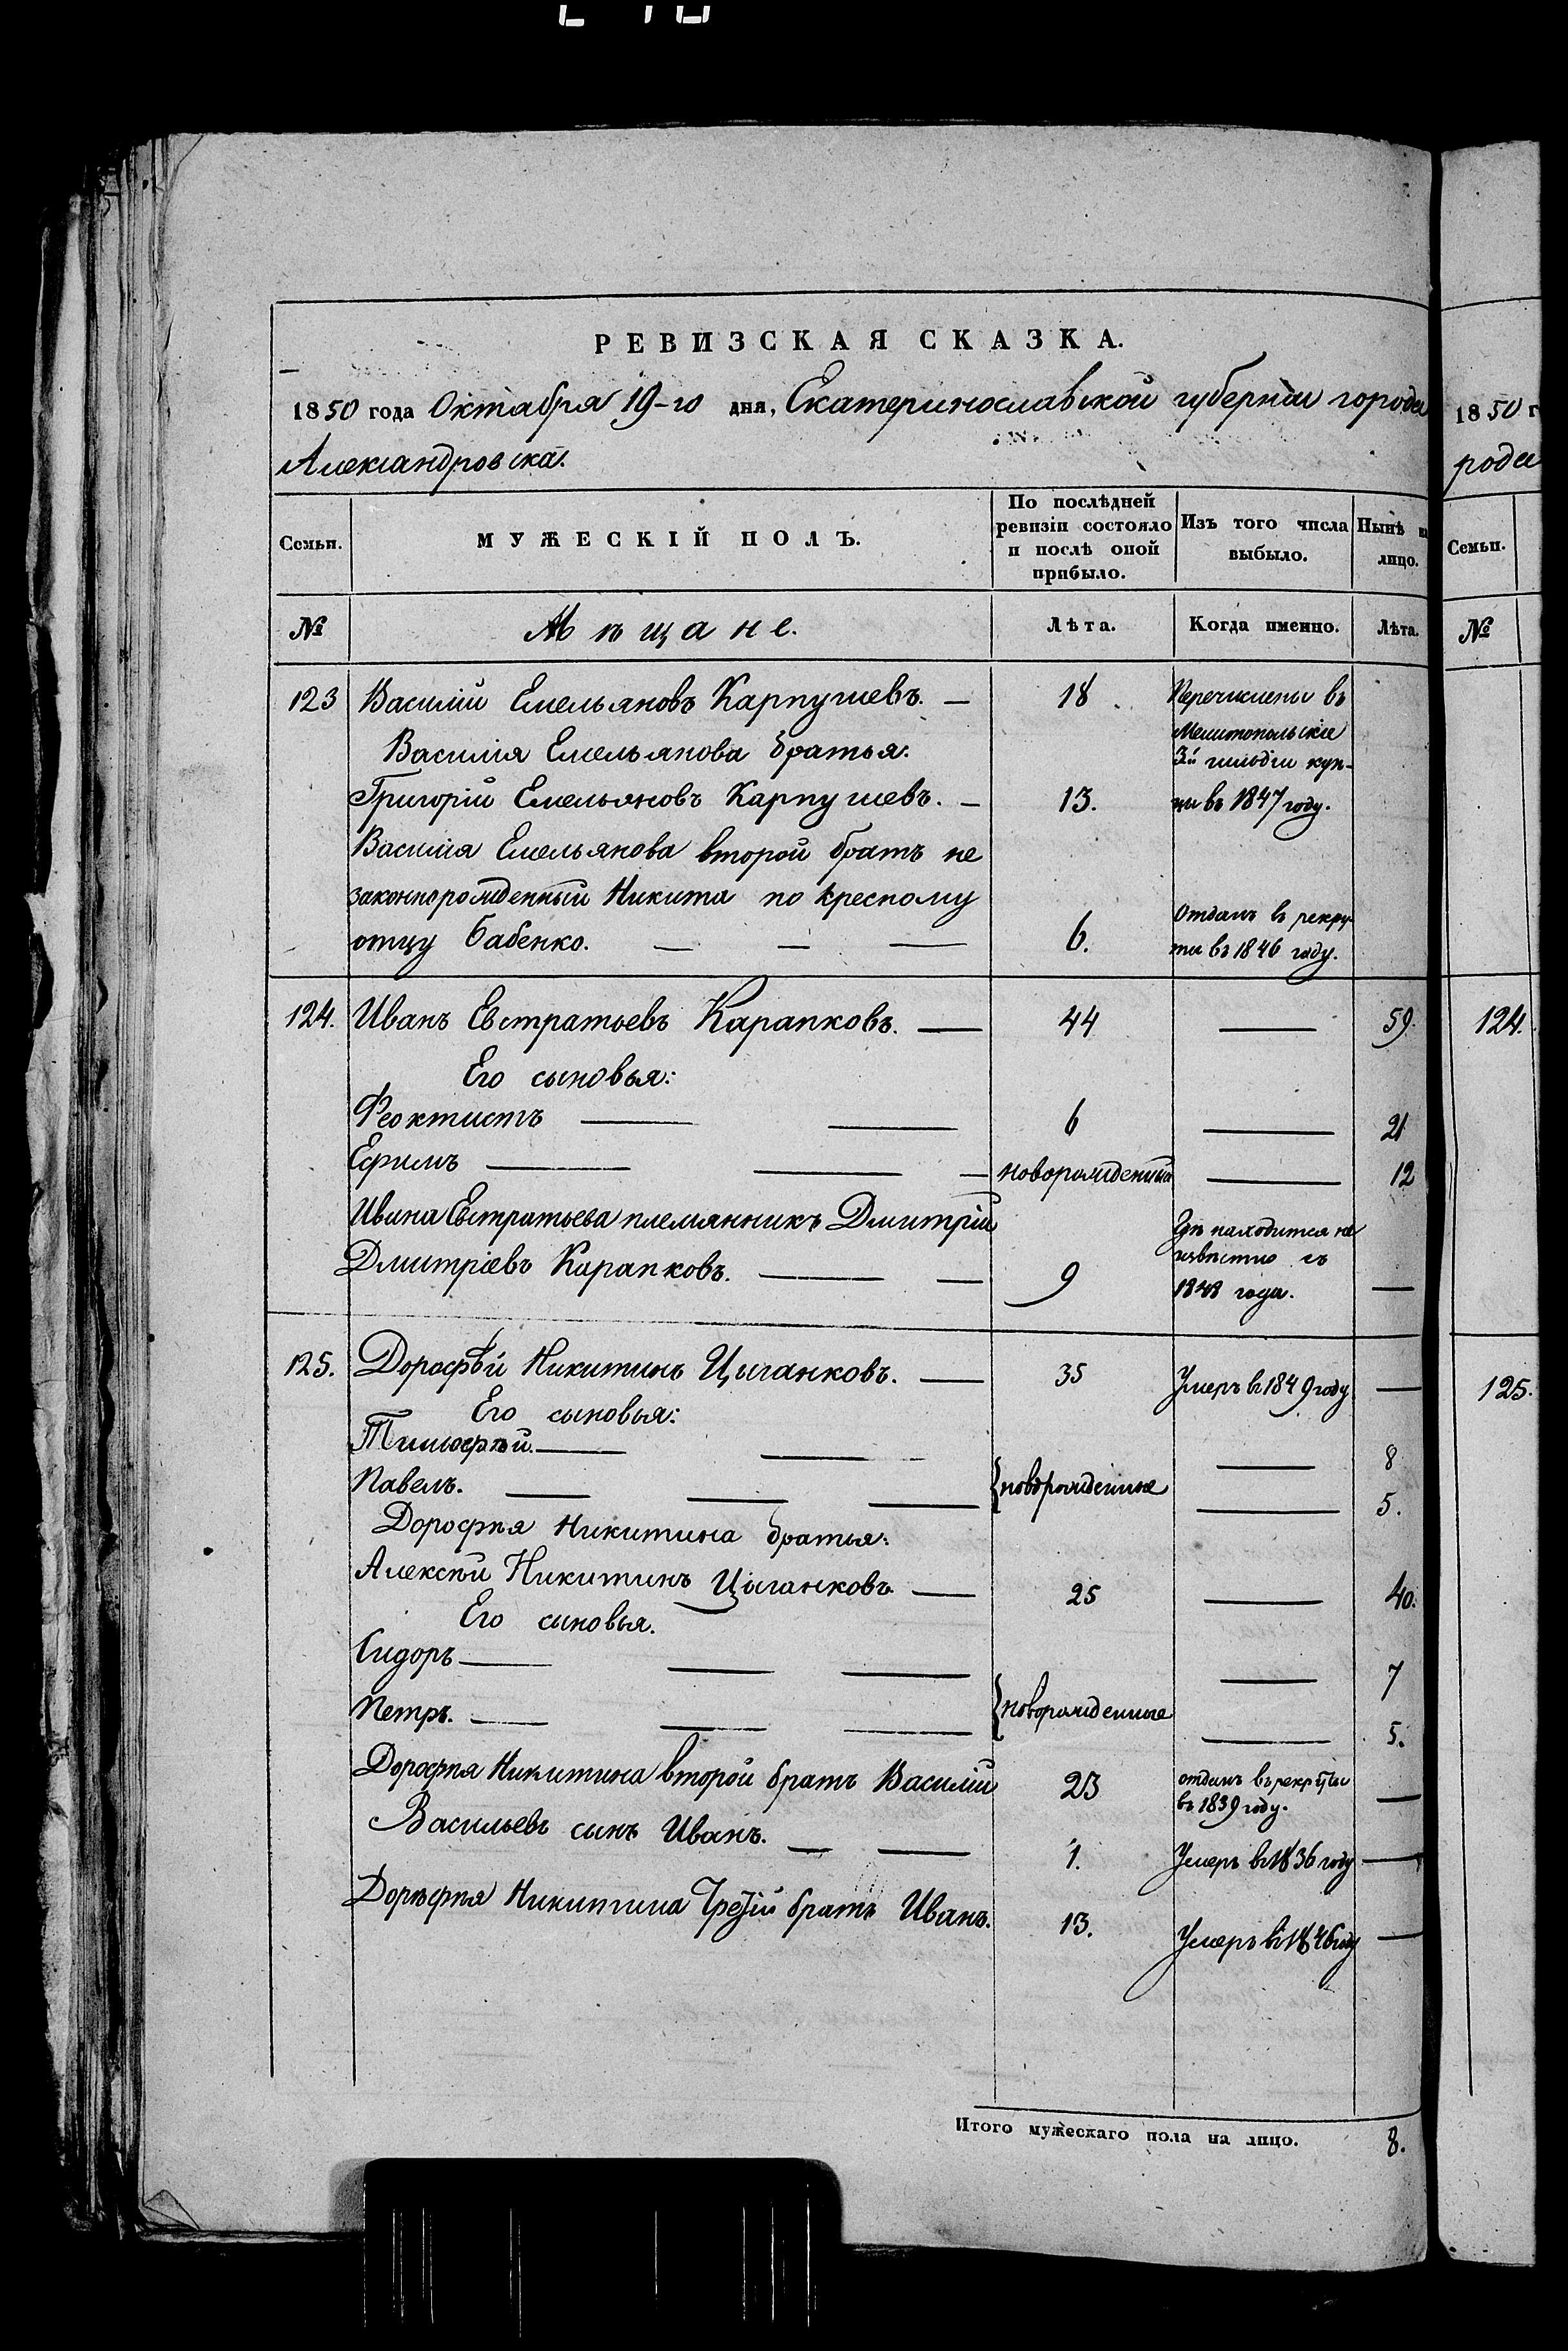 РЕВИЗСКАЯ СКАЗКА.
1850 года Октября 19-го дня, Екатеринославской губерніи города
Александровска.
Семьи. МУЖЕСКІЙ ПОЛЪ. По послѣдней ревизіи состояло и послѣ оной прибыло. Изъ того числа выбыло. Нынѣ на лицо.
№ Мѣщане. Лѣта. Когда именно. Лѣта.
123 Василій Емельяновъ Карпушевъ. — 18 Перечислены въ
Мелитопольскіе
Василія Емельянова братья:
3й гильдіи куп-
Григорій Емельяновъ Карпушевъ. — 13. цы въ 1847 году.
Василія Емельянова второй братъ не
законнорожденный Никита по кресному
Отданъ въ рекру-
отцу Бабенко. — — — 6. ты въ 1846 году.
124. Иванъ Евстратьевъ Карапковъ. — 44 — 59.
Его сыновья:
Феоктистъ — — 6 — 21
Ефимъ — — — новорожденный — 12
Ивана Евстратьева племянникъ Дмитрій
Гдѣ находится не
извѣстно съ
Дмитріевъ Карапковъ. — — 9 1848 года. —
125. Дорофѣй Никитинъ Цыганковъ. — 35 Умеръ въ 1849 году —
Его сыновья:
Тимофѣй. — — — 8
{новорожденные
Павелъ. — — — — 5.
Дорофѣя Никитина братья:
Алексѣй Никитинъ Цыганковъ — 25 — 40.
Его сыновья.
Сидоръ — — — — 7
{новорожденные
Петръ. — — — — 5.
Дорофѣя Никитина второй братъ Василій 23 отданъ въ рекруты
въ 1839 году. —
Васильевъ сынъ Иванъ. — — 1. Умеръ въ 1836 году —
Дорофѣя Никитина Третій братъ Иванъ. 13. Умеръ въ 1846 году —
Итого мужескаго пола на лицо. 8.
1850 г
рода
Семьи.
№
124.
125.